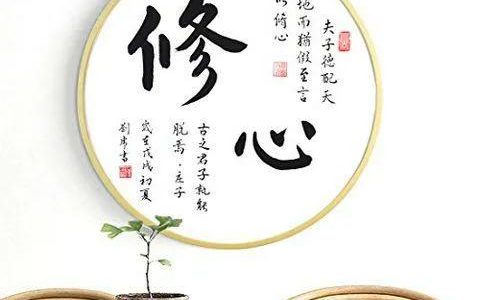 修
心
夫子德配天
地而猶假至言
以脩心
古之君子孰能
脫焉·庄子
歲在戊戌初夏
劉 書